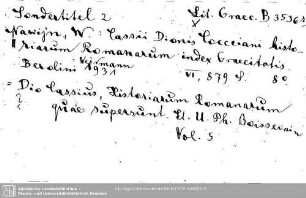 Sondertitel 2
Lit. Graec. B 3536
Nawijn, W: Cassii Dionis Cocceiani histo-
riarum Romanarum index Graecitatis.
Berolini Weidmann 1931
VI, 879 S. 8°
= Dio Cassius, Historiarum Romanarum
quae supersunt. Ed. U. Ph. Boissevain
Vol. 5